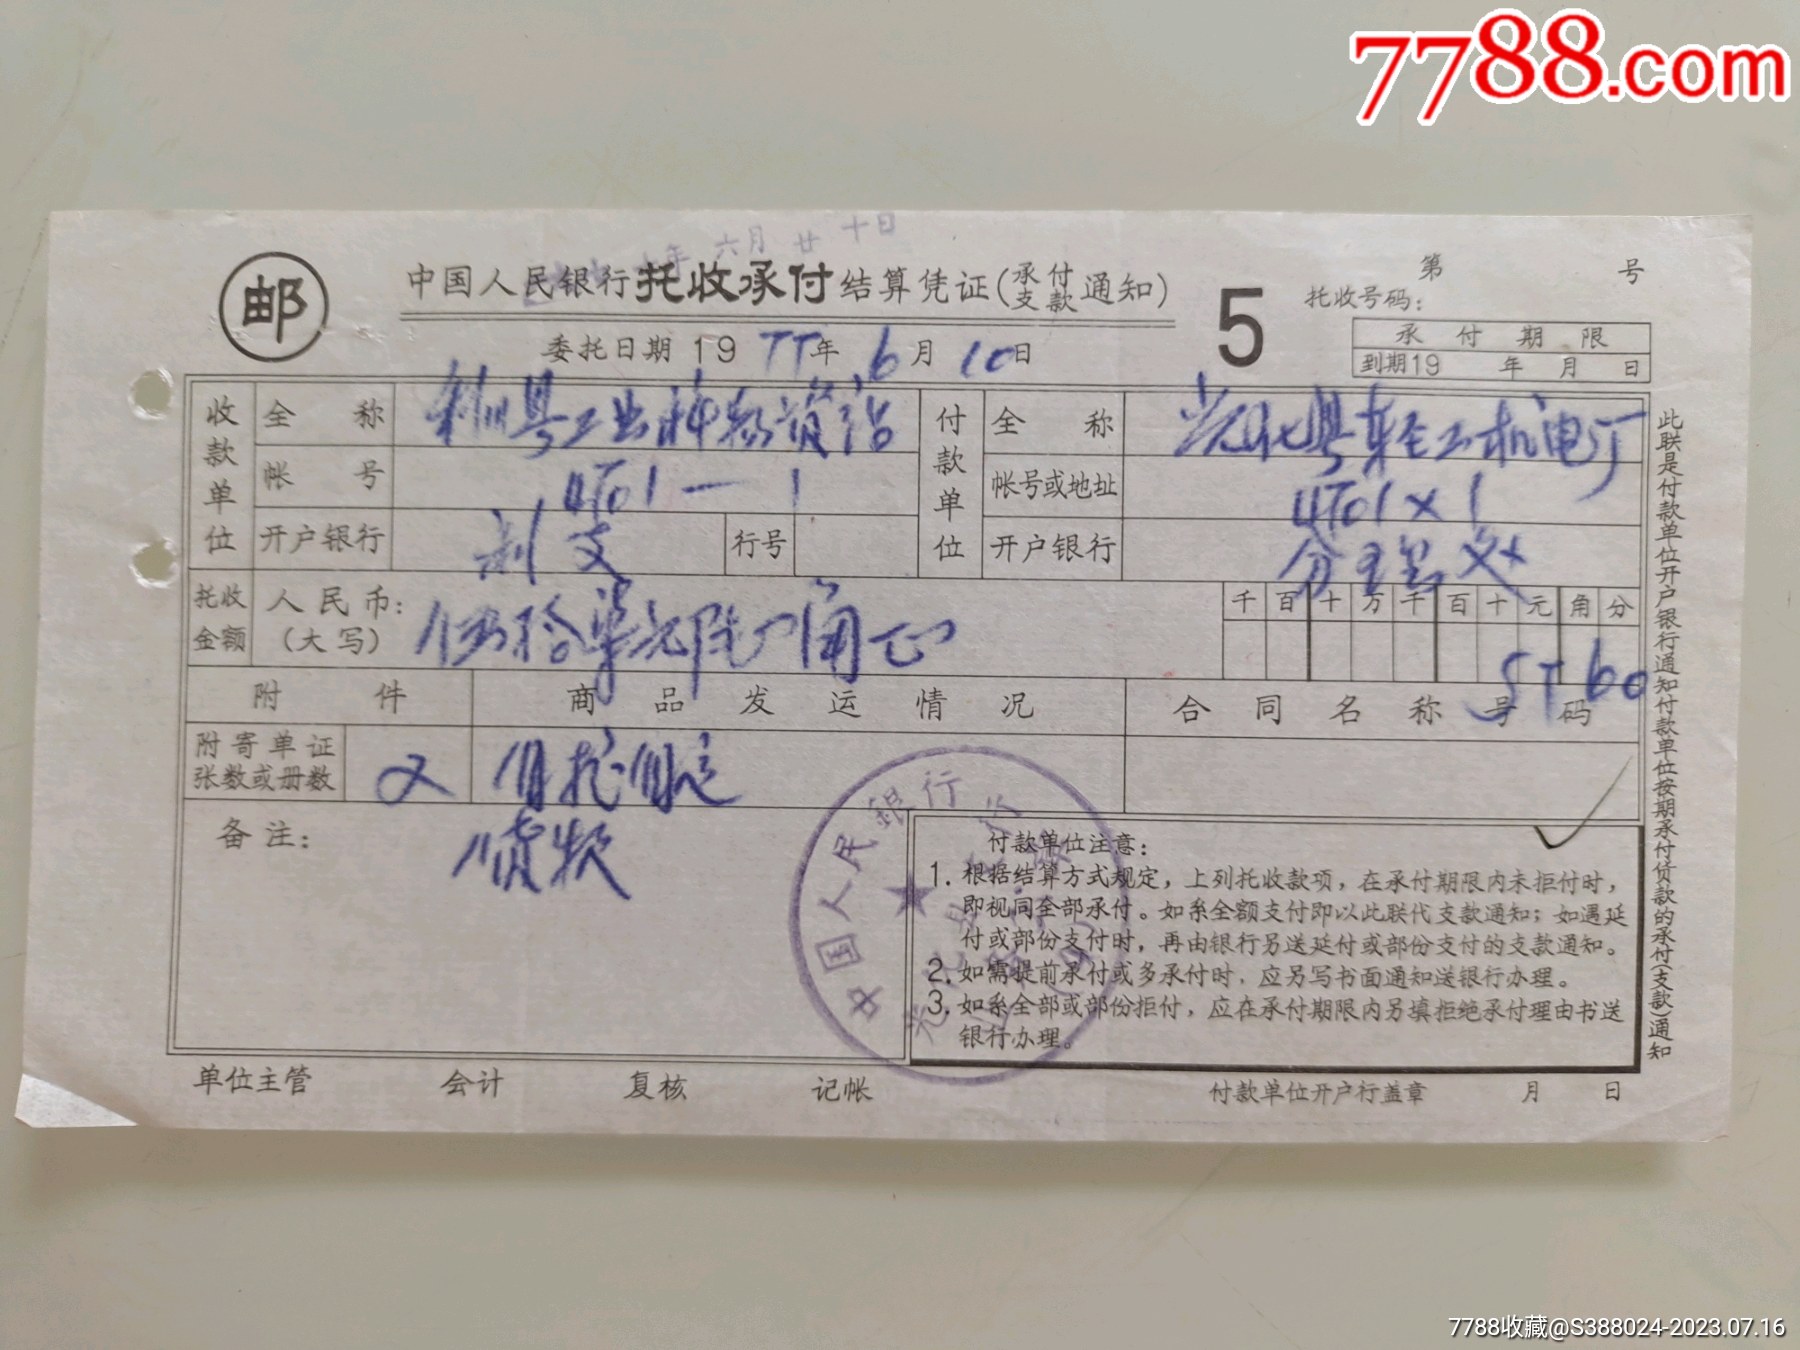 7788.com
六月廿十日
邮
中国人民银行托收承付结算凭证(承付支款通知)
5
第 号
托收号码:
承付期限
到期19 年 月 日
委托日期 1977年 6月 10日
收款单位
全称
县工业
帐号
4701-1
开户银行
支
行号
付款单位
全称
光化县轻工机电厂
帐号或地址
4701×1
开户银行
分理处
托收金额
人民币:
(大写)
伍拾柒元陆角正
千百十万千百十元角分
5760
附件
商品发运情况
合同名称号码
附寄单证
张数或册数
备注:
中国人民银行
付款单位注意:
1. 根据结算方式规定,上列托收款项,在承付期限内未拒付时,
即视同全部承付。如系全额支付即以此联代支款通知;如遇延
付或部份支付时,再由银行另送延付或部份支付的支款通知。
2. 如需提前承付或多承付时,应另写书面通知送银行办理。
3. 如系全部或部份拒付,应在承付期限内另填拒绝承付理由书送
银行办理。
此联是付款单位开户银行通知付款单位按期承付货款的承付(支款)通知
单位主管 会计 复核 记帐
付款单位开户行盖章 月 日
7788收藏@S388024-2023.07.16